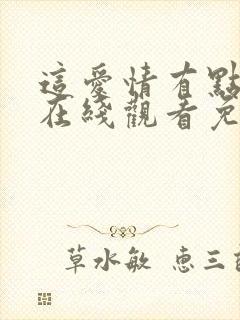 這愛情有點
在綫觀看免
草水敏 惠三